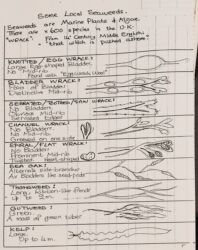 Some Local Seaweeds.
Seaweeds are Marine Plants & Algae.
There are x 600 species in the U.K.
"WRACK" From 14th Century Middle English
"that which is pushed ashore"
KNOTTED / EGG WRACK:
Large Egg-shaped Bladders.
No "Mid-rib"
Found with
BLADDER WRACK:
Pairs of Bladders
Distinctive Mid-rib
SERRATED/TOOTHED/SAW WRACK:
No Bladders.
Obvious Mid-rib
Serrated Edges
CHANNEL WRACK:
No Bladders
No Mid-rib.
Grooved on one side
SPIRAL/FLAT WRACK:
No Bladders
Prominent Mid-rib
Heart-shaped
SEA OAK:
Alternate side-branches
Air Bladders like seed-pods
THONGWEED:
Long, Ribbon-like fronds
Up to 2m.
GUTWEED:
Green
A mass of green tubes
KELP:
Large.
Up to 4m.